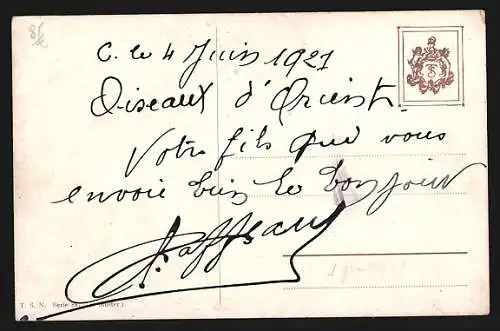 C. le 4 Juin 1921
Oiseaux d'Orient
Votre fils que vous
envoie bien le bonjour
T. S. N. Serie